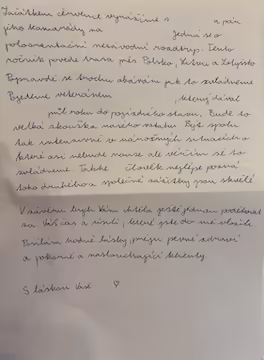 Začátkem července vyrážíme s a pár
jeho kamarády na Jedná se o
poloorientační nezávodní roadtrip. Tento
ročník povede trasa přes Polsko, Litvu a Lotyšsko
Popravdě se trochu obávám jak to zvládneme
Pojedeme veteránem , který dával
půl roku do pojízdného stavu. Bude to
velká zkouška našeho vztahu. Být spolu
tak intenzivně v náročných situacích
které ani nebude nouze ale věřím že to
zvládneme. Takhle člověk nejlépe pozná
toho druhého a společné zážitky jsou skvělé
V závěru bych Vám chtěla ještě jednou poděkovat
za Váš čas a úsilí, které jste do mě vložila
Posílám hodně lásky, přeji pevné zdraví
a pokorné a naslouchající klienty.
S láskou Vaše